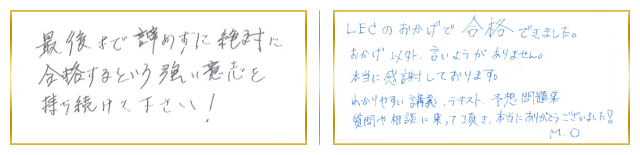 最後まで諦めずに絶対に
合格するという強い意志を
持ち続けて下さい！
LECのおかげで合格できました。
おかげ以外、言いようがありません。
本当に感謝しております。
わかりやすい講義、テキスト、予想問題集
質問や相談に乗って頂き、本当にありがとうございました！
M.O